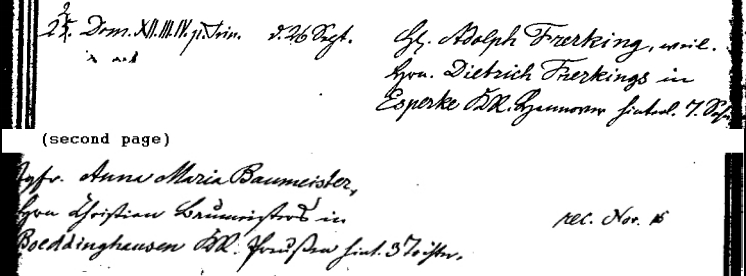 25. Dom. XII. III. IV. p. Trin. d. 26 Sept. Hr. Adolph Frerking, weil.
Hrn. Dietrich Frerkings in
Esperke KR. Hannover hinterl. 7. Sohn
(second page)
Jgfr. Anna Maria Baumeister,
Hrn Christian Baumeisters in
Boeddinghausen KR. Preußen hint. 3 Tochter.
rec. Nov. 16